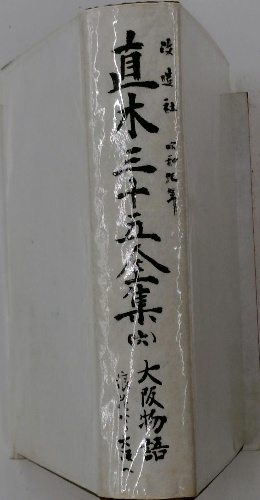 改造社 昭和九年
直木三十五全集(六)
大阪物語